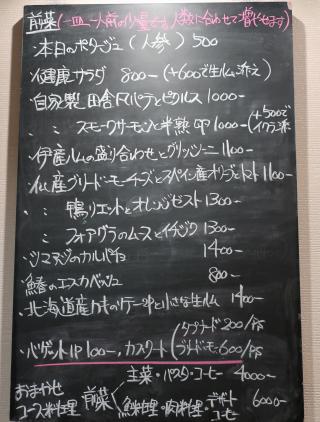 前菜(一皿一人前の少量です。人数に合わせて増やせます)
・本日のポタージュ(人参) 500
・健康サラダ 800-(+600で生ハム添え)
・自家製 田舎風パテとピクルス 1000-
・〃 スモークサーモンと半熟卵 1000-(+500でイクラ添
・伊産ハムの盛り合わせとグリッシーニ 1100-
・仏産ブリ・ド・モーチーズとスペイン産オリーブとトマト 1100-
・〃 鴨リエットとオレンジゼスト 1300-
・〃 フォアグラのムースとイチジク 1300-
・シマアジのカルパッチョ 1400-
・鰆のエスカベッシュ 800-
・北海道産カキのソテー 2P と小さな生ハム 1400-
・バゲット1P 100-、カスクート(タプナード 200/PS
ブリ・ド・モー 600/PS
おまかせ
コース料理 前菜 主菜・パスタ・コーヒー 4000-
魚料理・肉料理・デザート コーヒー 6000-